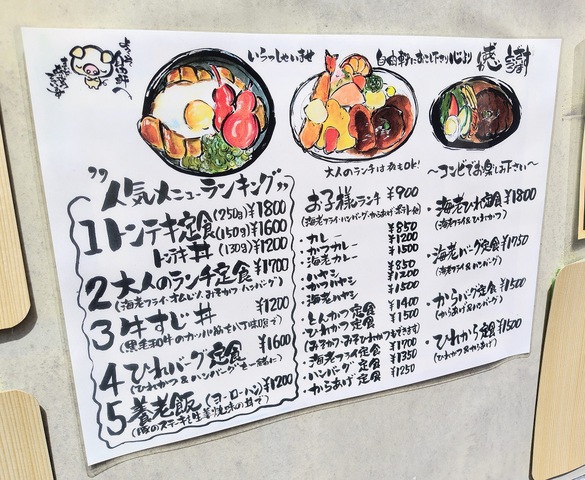 いらっしゃいませ
自由軒におこし下さり心より感謝
"人気メニューランキング"
1 トンテキ定食(250g)¥1800
(150g)¥1600
トンテキ丼(130g)¥1200
2 大人のランチ定食¥1700
(海老フライ・オムレツ、おろそかつ、ハンバーグ)
3 牛すじ丼 ¥1200
4 ひれバーグ定食 ¥1600
(ひれかつ&ハンバーグを一緒に)
5 養老飯(ヨーローハン)¥1200
(豚のステーキと生姜焼味の丼で)
大人のランチは夜もOK!
お子様ランチ ¥900
(海老フライ・ハンバーグ・からあげ・ポテト他)
・カレー ¥850
・カツカレー ¥1200
・海老カレー ¥1500
・ハヤシ ¥850
・かつハヤシ ¥1200
・海老ハヤシ ¥1500
・とんかつ定食 ¥1400
・ひれかつ定食 ¥1500
(みそかつ・おろしかつもできます)
・海老フライ定食 ¥1700
・ハンバーグ定食 ¥1350
・からあげ定食 ¥1250
〜コンビでお楽しみ下さい〜
・海老ひれ定食 ¥1800
(海老フライ&ひれかつ)
・海老バーグ定食 ¥1750
(海老フライ&ハンバーグ)
・からバーグ定食 ¥1500
(からあげ&ハンバーグ)
・ひれから定食 ¥1500
(ひれかつ&からあげ)